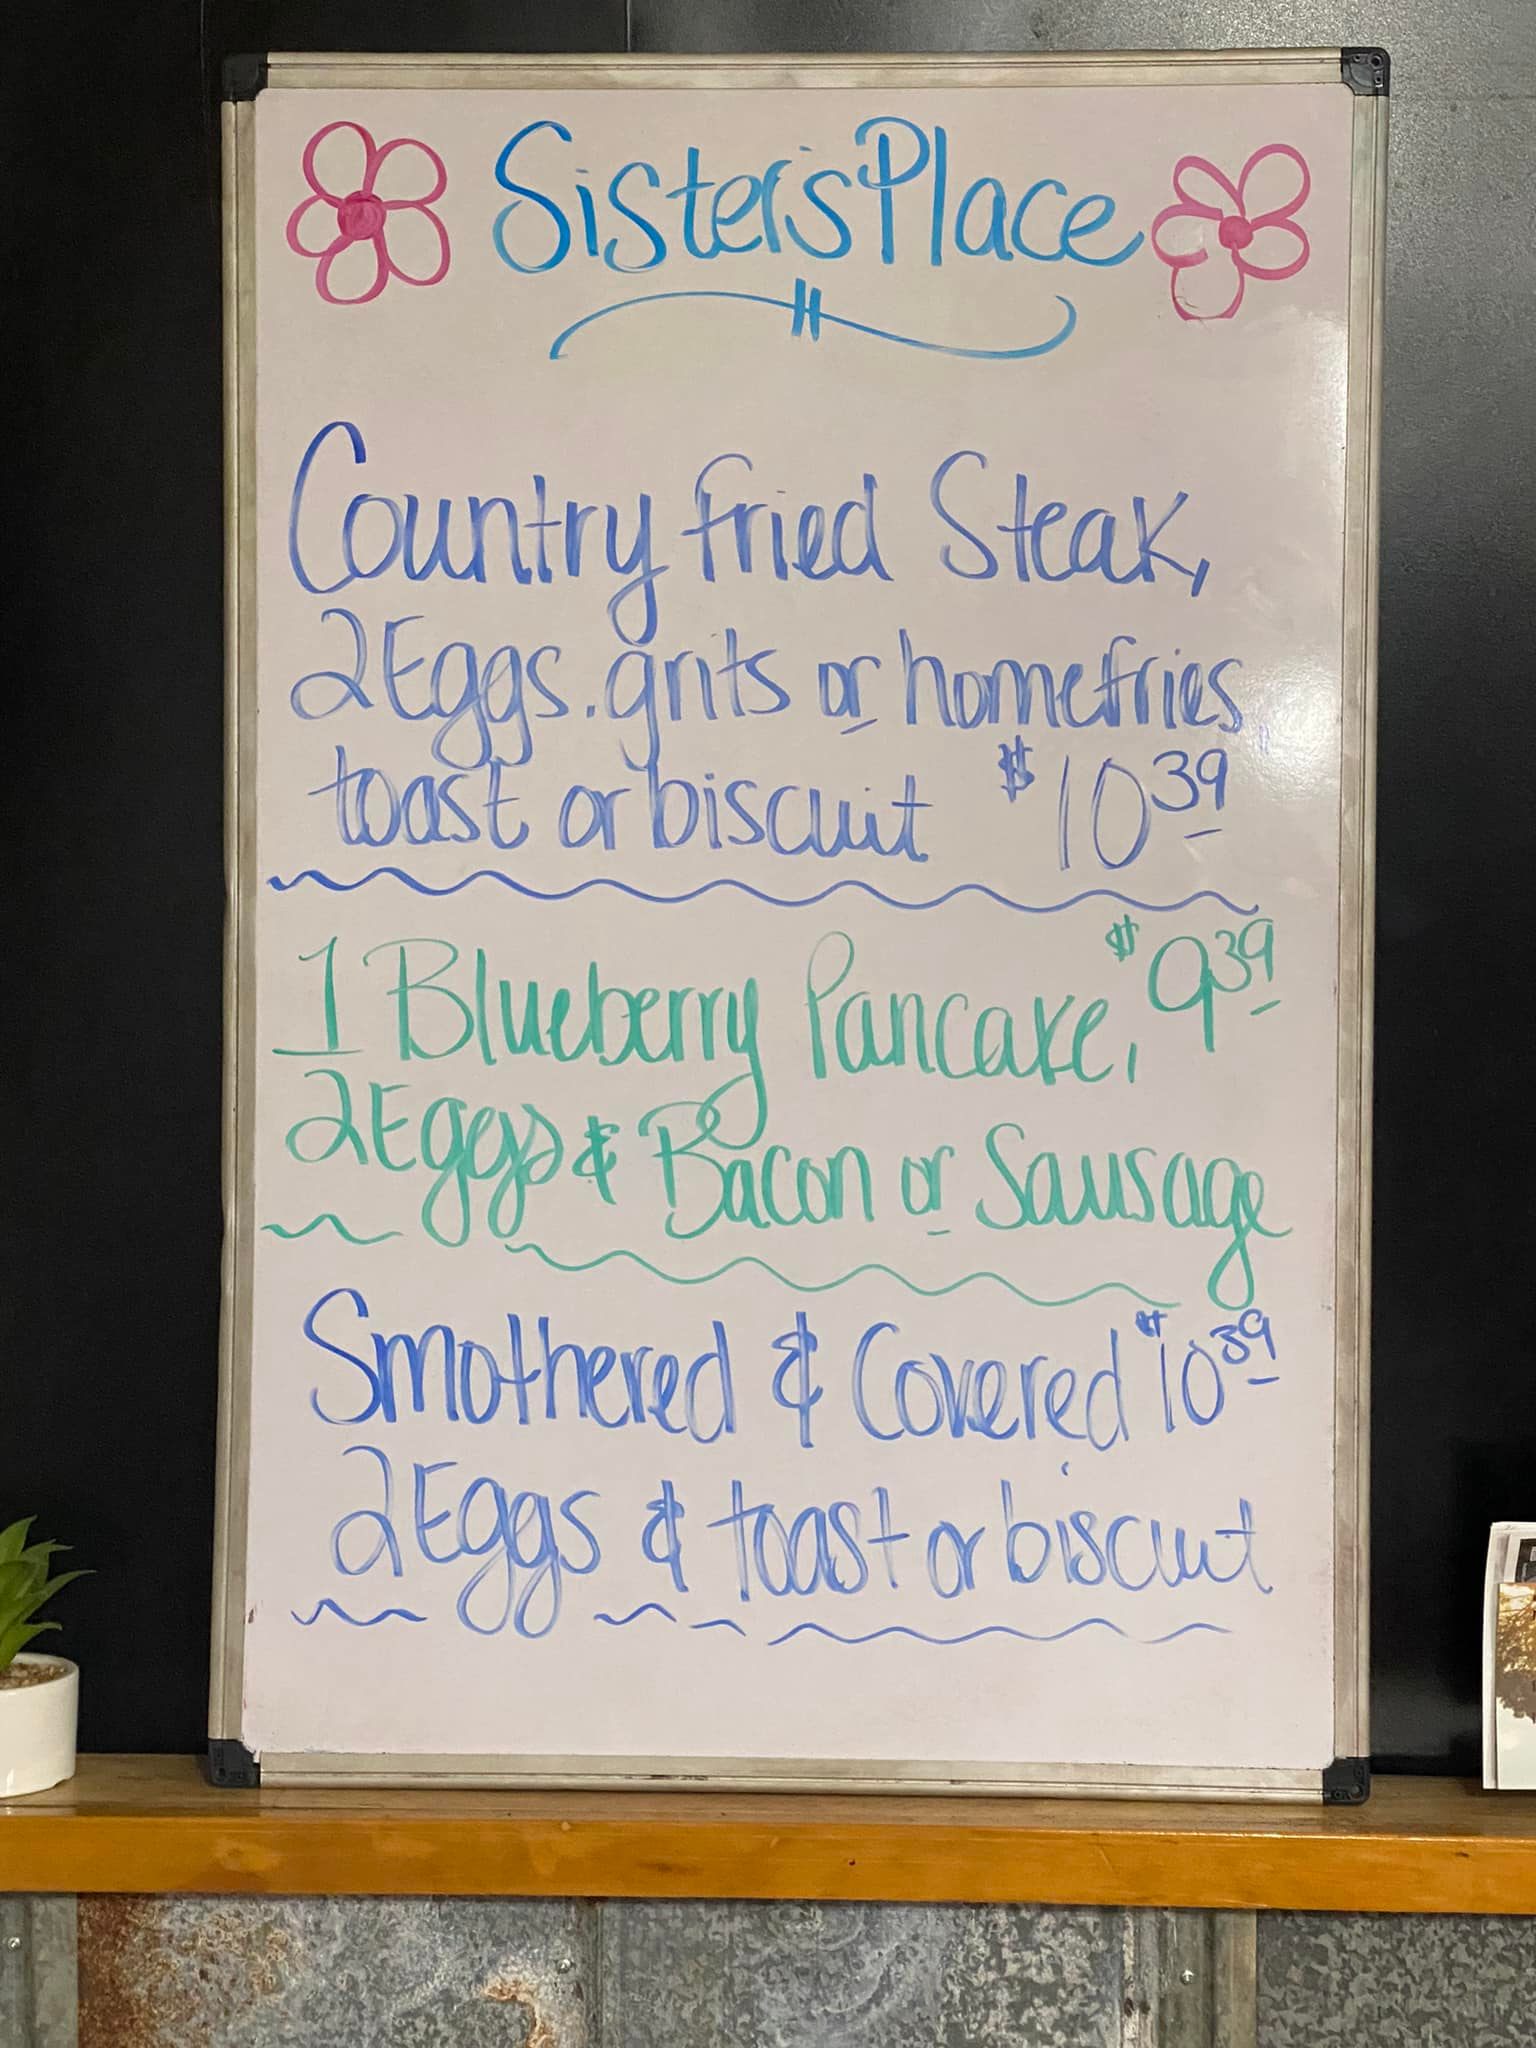 Sister's Place
Country fried Steak,
2 Eggs. grits or homefries,
toast or biscuit $10.39
1 Blueberry Pancake, $9.39
2 Eggs & Bacon or Sausage
Smothered & Covered $10.39
2 Eggs & toast or biscuit